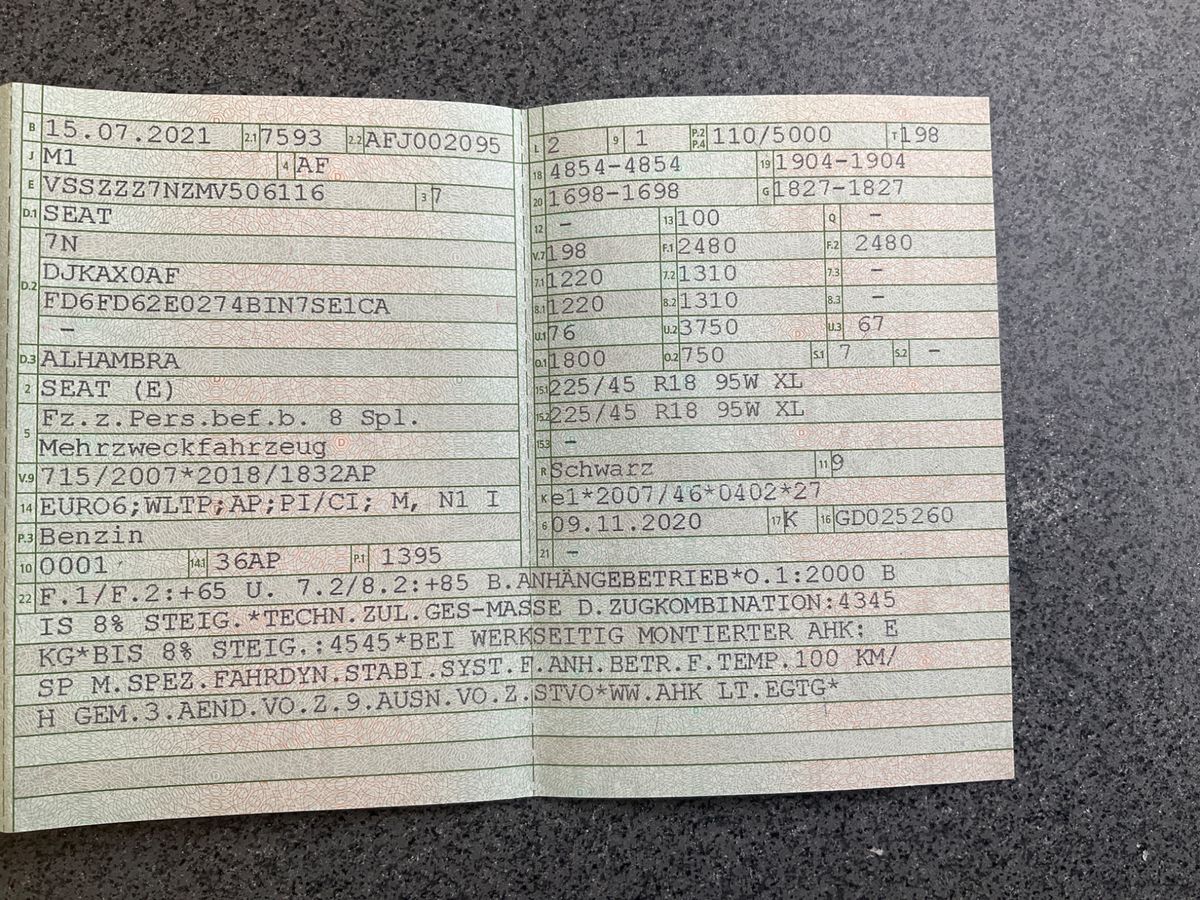 B 15.07.2021 2.1 7593 2.2 AFJ002095
J M1 4 AF
E VSSZZZ7NZMV506116 3 7
D.1 SEAT
7N
D.2 DJKAX0AF
FD6FD62E0274BIN7SE1CA
–
D.3 ALHAMBRA
2 SEAT (E)
5 Fz.z.Pers.bef.b. 8 Spl.
Mehrzweckfahrzeug
V.9 715/2007*2018/1832AP
14 EURO6;WLTP;AP;PI/CI; M, N1 I
P.3 Benzin
10 0001 14.1 36AP P.1 1395
L 2 9 1 P.2 P.4 110/5000 T 198
18 4854-4854 19 1904-1904
20 1698-1698 G 1827-1827
12 – 13 100 Q –
V.7 198 F.1 2480 F.2 2480
7.1 1220 7.2 1310 7.3 –
8.1 1220 8.2 1310 8.3 –
U.1 76 U.2 3750 U.3 67
O.1 1800 O.2 750 S.1 7 S.2 –
15.1 225/45 R18 95W XL
15.2 225/45 R18 95W XL
15.3 –
R Schwarz 11 9
K e1*2007/46*0402*27
6 09.11.2020 17 K 16 GD025260
21 –
22 F.1/F.2:+65 U. 7.2/8.2:+85 B.ANHÄNGEBETRIEB*O.1:2000 B
IS 8% STEIG.*TECHN.ZUL.GES-MASSE D.ZUGKOMBINATION:4345
KG*BIS 8% STEIG.:4545*BEI WERKSEITIG MONTIERTER AHK: E
SP M.SPEZ.FAHRDYN.STABI.SYST.F.ANH.BETR.F.TEMP.100 KM/
H GEM.3.AEND.VO.Z.9.AUSN.VO.Z.STVO*WW.AHK LT.EGTG*